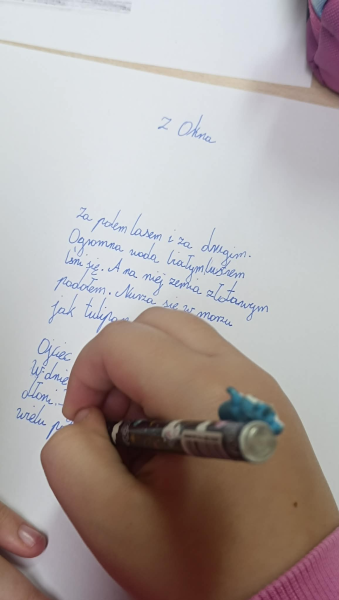 Z Okna
Za polem lasem i za drugim.
Ogromna woda białym lustrem
lśni się. A na niej ziemia złotawym
podołem. Nurza się w morzu
jak
Ojciec
W dnie
dłoni
wielu